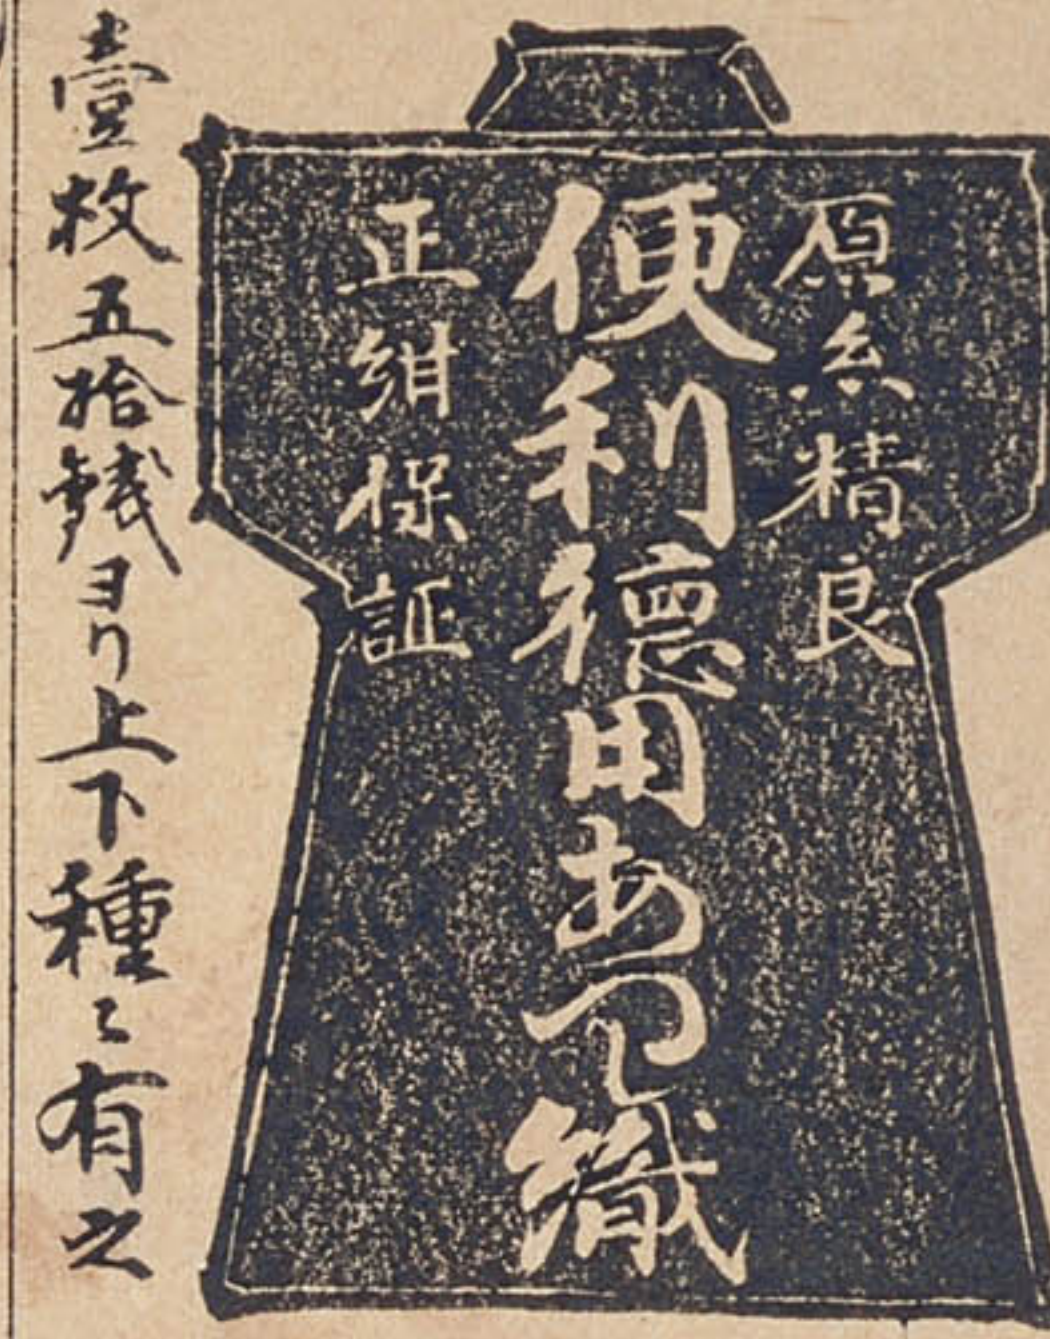 原糸精良
便利徳用あつし織
正紺保証
壹枚五拾銭ヨリ上下種〻有之